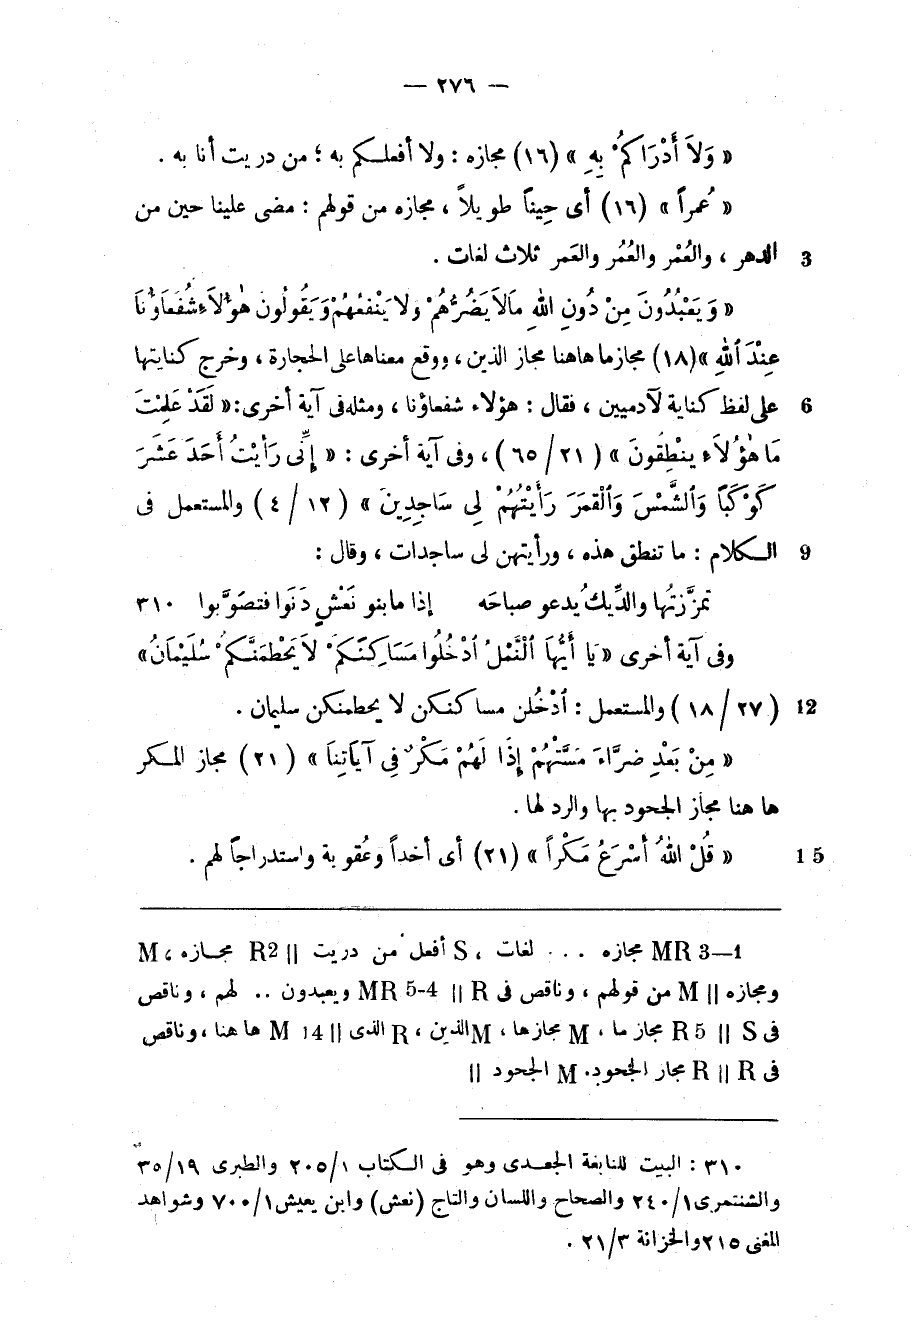 — ٢٧٦ —
« وَلاَ أَدْرَاكُمْ بِهِ » (١٦) مجازه : ولا أفعلكم به ؛ من دريت أنا به .
« عُمراً » (١٦) أى حِيناً طويلاً ، مجازه من قولهم : مضى علينا حين من
الدهر ، والعُمْر والعُمُر والعَمر ثلاث لغات . 3
« وَيَعْبُدُونَ مِنْ دُونِ اللهِ مَالاَ يَضُرُّهُمْ وَلا يَنْفَعُهُمْ وَيَقُولُونَ هٰؤُلاَءِ شُفَعَاؤُنَا
عِنْدَ ٱللهِ »(١٨) مجازما هاهنا مجاز الذين ، ووقع معناها على الحجارة ، وخرج كنايتها
على لفظ كناية لآدميين ، فقال : هؤلاء شفعاؤنا ، ومثله فى آية أخرى: « لَقَدْ عَلِمْتَ 6
مَا هٰؤُلاَءِ يَنْطِقُونَ » ( ٢١ / ٦٥ ) ، وفى آية أخرى : « إِنِّى رَأَيْتُ أَحَدَ عَشَرَ
كَوْكَبًا وَٱلشَّمْسَ وَٱلْقَمَرَ رَأَيْتُهُمْ لِى سَاجِدِينَ » ( ١٢ / ٤ ) والمستعمل فى
الكلام : ما تنطق هذه ، ورأيتهن لى ساجدات ، وقال : 9
تمزَّزتُها والدِّيكُ يدعو صباحَه إذا ما بنو نَعْشٍ دَنَوا فتصوَّبوا ٣١٠
وفى آية أخرى « يَا أَيُّهَا ٱلنَّمْلُ ٱدْخُلُوا مَسَاكِنَكُمْ لاَ يَحْطِمَنَّكُمْ سُلَيْمَانُ »
( ٢٧ / ١٨ ) والمستعمل : ٱدْخُلن مساكنكن لا يحطمنكن سليمان . 12
« مِنْ بَعْدِ ضرَّاءَ مَسَّتْهُمْ إِذَا لَهُمْ مَكْرٌ فِى آيَاتِنَا » ( ٢١ ) مجاز المكر
ها هنا مجاز الجحود بها والرد لها .
« قُلْ اللهُ أَسْرَعُ مَكْراً » (٢١) أى أخذاً وعُقوبة واستدراجاً لهم . 15
1—3 MR مجازه . . . لغات ، S أفعل من دريت || R2 مجازه ، M
ومجازه || M من قولهم ، وناقص فى R || MR 5-4 ويعبدون .. لهم ، وناقص
فى S || R 5 مجاز ما ، M مجازها ، M الذين ، R الذى || M 14 ها هنا ، وناقص
فى R || R مجار الجحود. M الجحود ||
٣١٠ : البيت للنابغة الجعدى وهو فى الكتاب ١/٢٠٥ والطبرى ١٩/٣٥
والشنتمرى ١/٢٤٠ والصحاح واللسان والتاج (نعش) وابن يعيش ١/٧٠٠ وشواهد
المغنى ٢١٥ والخزانة ٣/٢١ .